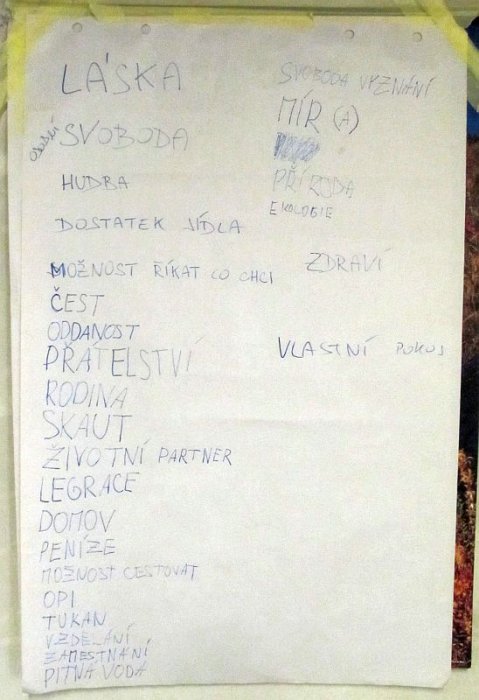 LÁSKA
osobní SVOBODA
HUDBA
DOSTATEK JÍDLA
MOŽNOST ŘÍKAT CO CHCI
ČEST
ODDANOST
PŘÁTELSTVÍ
RODINA
SKAUT
ŽIVOTNÍ PARTNER
LEGRACE
DOMOV
PENÍZE
MOŽNOST CESTOVAT
OPI
TUKAN
VZDĚLÁNÍ
ZAMESTNÁNÍ
PITNÁ VODA
SVOBODA VYZNÁNÍ
MÍR (A)
PŘÍRODA
EKOLOGIE
ZDRAVÍ
VLASTNÍ POKOJ